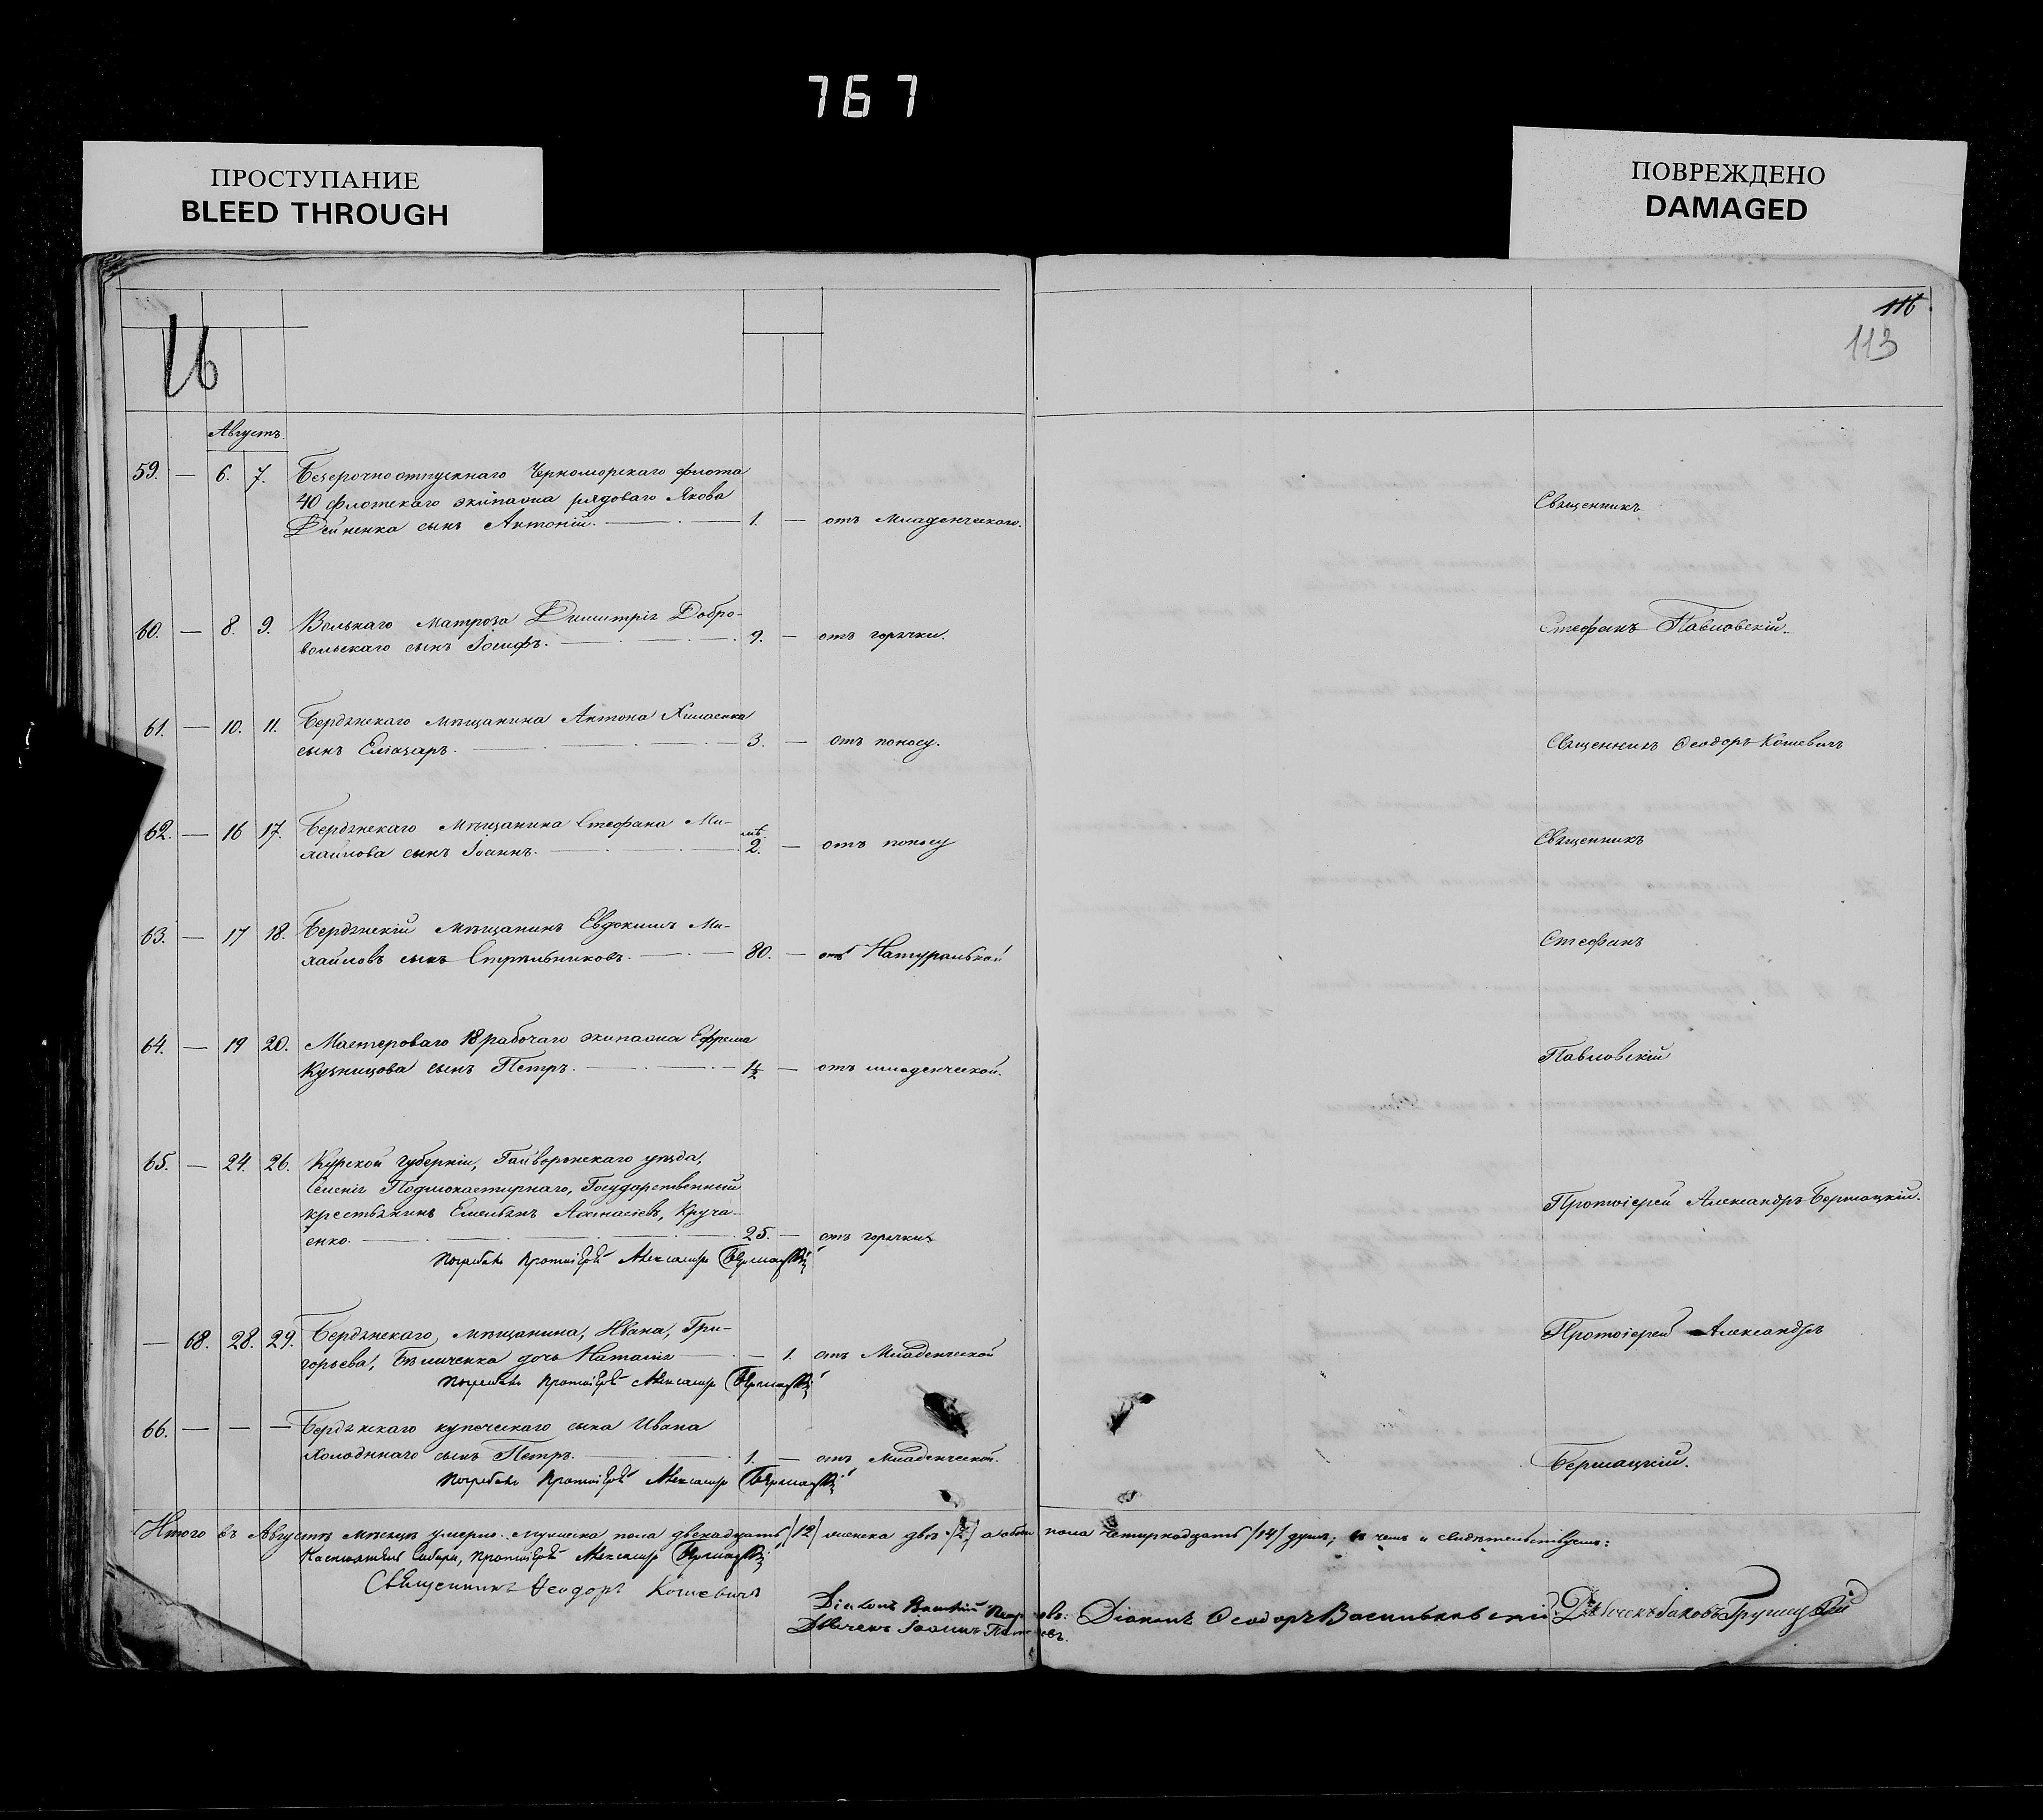 767
ПРОСТУПАНИЕ
BLEED THROUGH
ПОВРЕЖДЕНО
DAMAGED
116
113
Августъ.
59. — 6. 7. Безсрочноотпускнаго Черноморскаго флота
40 флотскаго экипажа рядоваго Якова
Дейненка сынъ Антоній. — 1. — отъ Младенческаго.
Священникъ
60. — 8. 9. Вольнаго матроза Димитрія Добро-
вольскаго сынъ Іосифъ. — 9. — отъ горячки.
Стефанъ Павловскій.
61. — 10. 11. Бердянскаго мѣщанина Антона Хилаенка
сынъ Еліазаръ. — 3. — отъ поносу.
Священникъ Ѳеодоръ Кошевичъ
62. — 16 17. Бердянскаго Мѣщанина Стефана Ми-
хайлова сынъ Іоаннъ. — мѣ. 2. — отъ поносу
Священникъ
63. — 17 18. Бердянскій мѣщанинъ Евдокимъ Ми-
хайловъ сынъ Стрѣльниковъ. — 80. — отъ Натуральной
Стефанъ
64. — 19 20. Мастероваго 18 рабочаго экипажа Ефрема
Кузницова сынъ Петръ. — 1/2 — отъ младенческой.
Павловскій
65. — 24. 26. Курской губерніи, Гайворонскаго уѣзда,
Селенія Подмонастырнаго, Государственный
крестьянинъ Емельянъ Аѳанасіевъ, Круча-
енко. — 25. — отъ горячки
Протоіерей Александръ Бершацкій.
Погребалъ Протоіерей Александръ Бершацкій
— 68. 28. 29. Бердянскаго, мѣщанина, Ивана, Гри-
горьева, Бѣличенка дочь Наталія — 1. отъ Младенческой
Протоіерей Александръ
Погребалъ Протоіерей Александръ Бершацкій
66. — — — Бердянскаго купеческаго сына Ивана
Холоднаго сынъ Петръ. — 1. — отъ Младенческой.
Бершацкій.
Погребалъ Протоіерей Александръ Бершацкій
Итого въ Августѣ мѣсяцѣ умерло мужеска пола двенадцать /12/ женска двѣ /2/ а обоего пола четырнадцать /14/ душъ; въ чемъ и свидѣтельствуемъ:
Настоятель Собора, Протоіерей Александръ Бершацкій
Священникъ Ѳеодоръ Кошевичъ
Діаконъ
Діаконъ Ѳеодоръ Васильковскій
Дьячекъ Іоаннъ
Дьячекъ Іаковъ